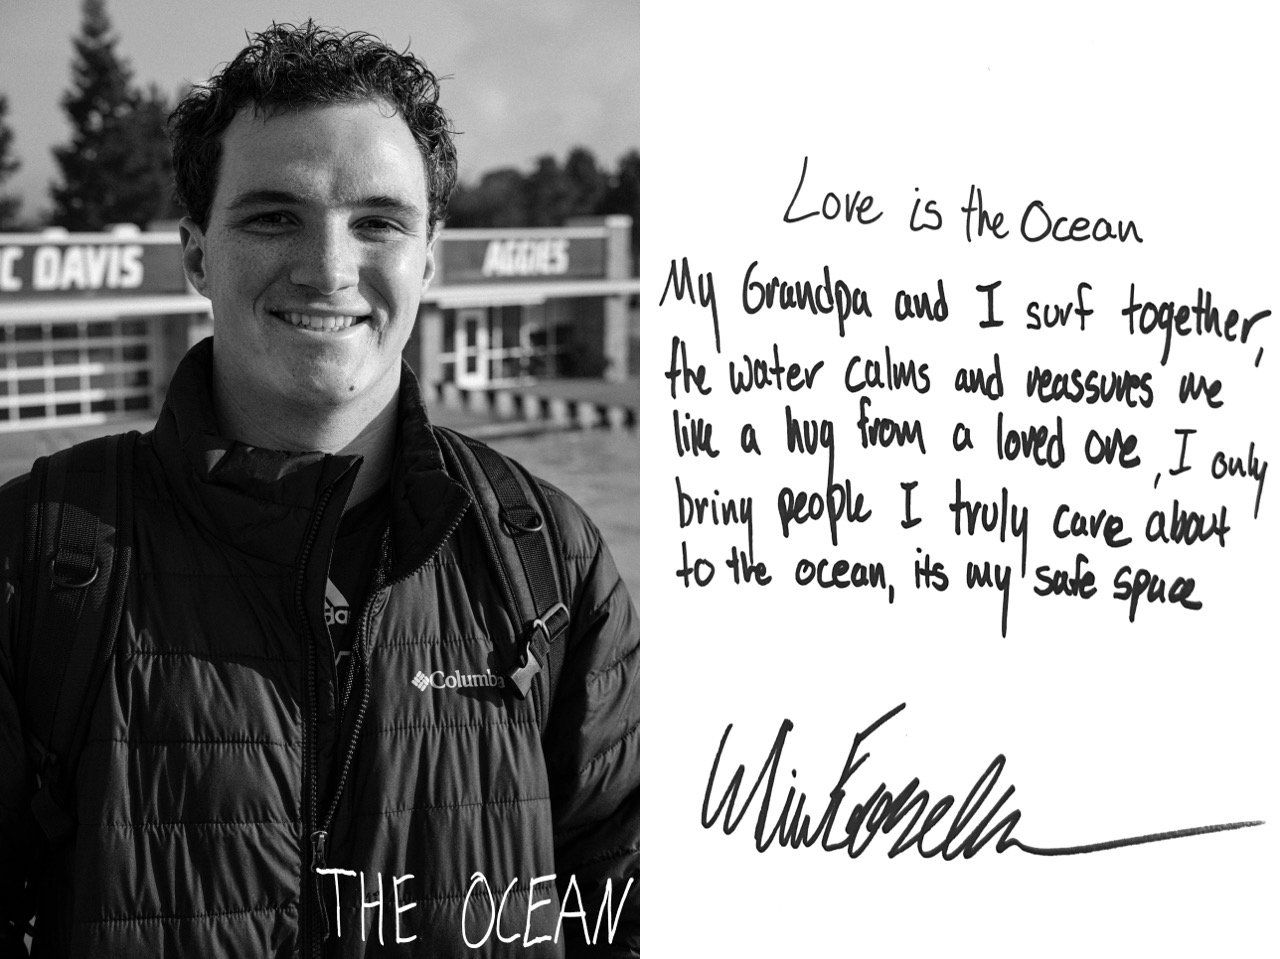 C DAVIS
AGGIES
adidas
Columbia
THE OCEAN
Love is the Ocean
My Grandpa and I surf together,
the water calms and reassures me
like a hug from a loved one, I only
bring people I truly care about
to the ocean, its my safe space